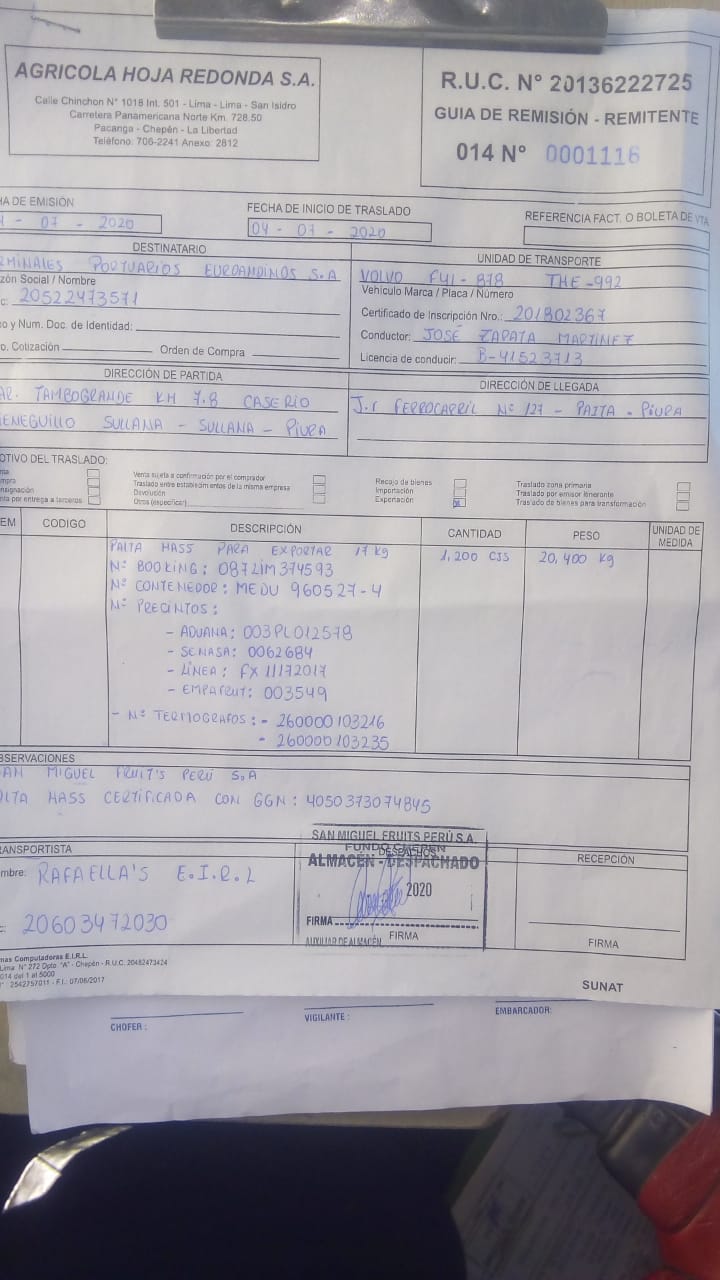 AGRICOLA HOJA REDONDA S.A.
Calle Chinchon N° 1018 Int. 501 - Lima - Lima - San Isidro
Carretera Panamericana Norte Km. 728.50
Pacanga - Chepén - La Libertad
Teléfono: 706-2241 Anexo: 2812
R.U.C. N° 20136222725
GUIA DE REMISIÓN - REMITENTE
014 N° 0001116
HA DE EMISIÓN
- 07 - 2020
FECHA DE INICIO DE TRASLADO
04 - 07 - 2020
REFERENCIA FACT. O BOLETA DE VTA
DESTINATARIO
RMINALES PORTUARIOS EUROANDINOS S.A
zón Social / Nombre
c: 20522473571
o y Num. Doc. de Identidad:
o. Cotización Orden de Compra
UNIDAD DE TRANSPORTE
VOLVO F4I - 878 THE -992
Vehículo Marca / Placa / Número
Certificado de Inscripción Nro.: 201802367
Conductor: JOSÉ ZAPATA MARTINEZ
Licencia de conducir: B-41523713
DIRECCIÓN DE PARTIDA
AR. TAMBOGRANDE KM 7.8 CASERIO
ENEGUILLO SULLANA - SULLANA - PIURA
DIRECCIÓN DE LLEGADA
J.r FERROCARRIL N° 127 - PAITA - PIURA
OTIVO DEL TRASLADO:
nta
mpra
nsignación
nta por entrega a terceros
Venta sujeta a confirmación por el comprador
Traslado entre establecimientos de la misma empresa
Devolución
Otros (especificar)
Recojo de bienes
Importación
Exportación
Traslado zona primaria
Traslado por emisor itinerante
Traslado de bienes para transformación
EM CODIGO DESCRIPCIÓN CANTIDAD PESO UNIDAD DE MEDIDA
PALTA HASS PARA EXPORTAR 17 Kg 1,200 CJS 20,400 Kg
N° BOOKING: 087LIM374593
N° CONTENEDOR: MEDU 960527-4
N° PRECINTOS:
- ADUANA: 003PL012578
- SENASA: 0062684
- LÍNEA: FX 11172017
- EMPAFRUT: 003549
- N° TERMOGRAFOS: - 260000103216
- 260000103235
BSERVACIONES
SAN MIGUEL FRUIT'S PERÚ S.A
ALTA HASS CERTIFICADA CON GGN: 4050373074845
RANSPORTISTA
mbre: RAFAELLA'S E.I.R.L
c: 20603472030
SAN MIGUEL FRUITS PERÚ S.A.
FUNDO CHEPEN
DESPACHOS
ALMACÉN - DESPACHADO
2020
FIRMA
AUXILIAR DE ALMACÉN FIRMA
RECEPCIÓN
FIRMA
mas Computadoras E.I.R.L.
Lima N° 272 Dpto. "A" - Chepén - R.U.C. 20482473424
014 del 1 al 5000
2542757011 - F.I.: 07/06/2017
SUNAT
CHOFER :
VIGILANTE :
EMBARCADOR: